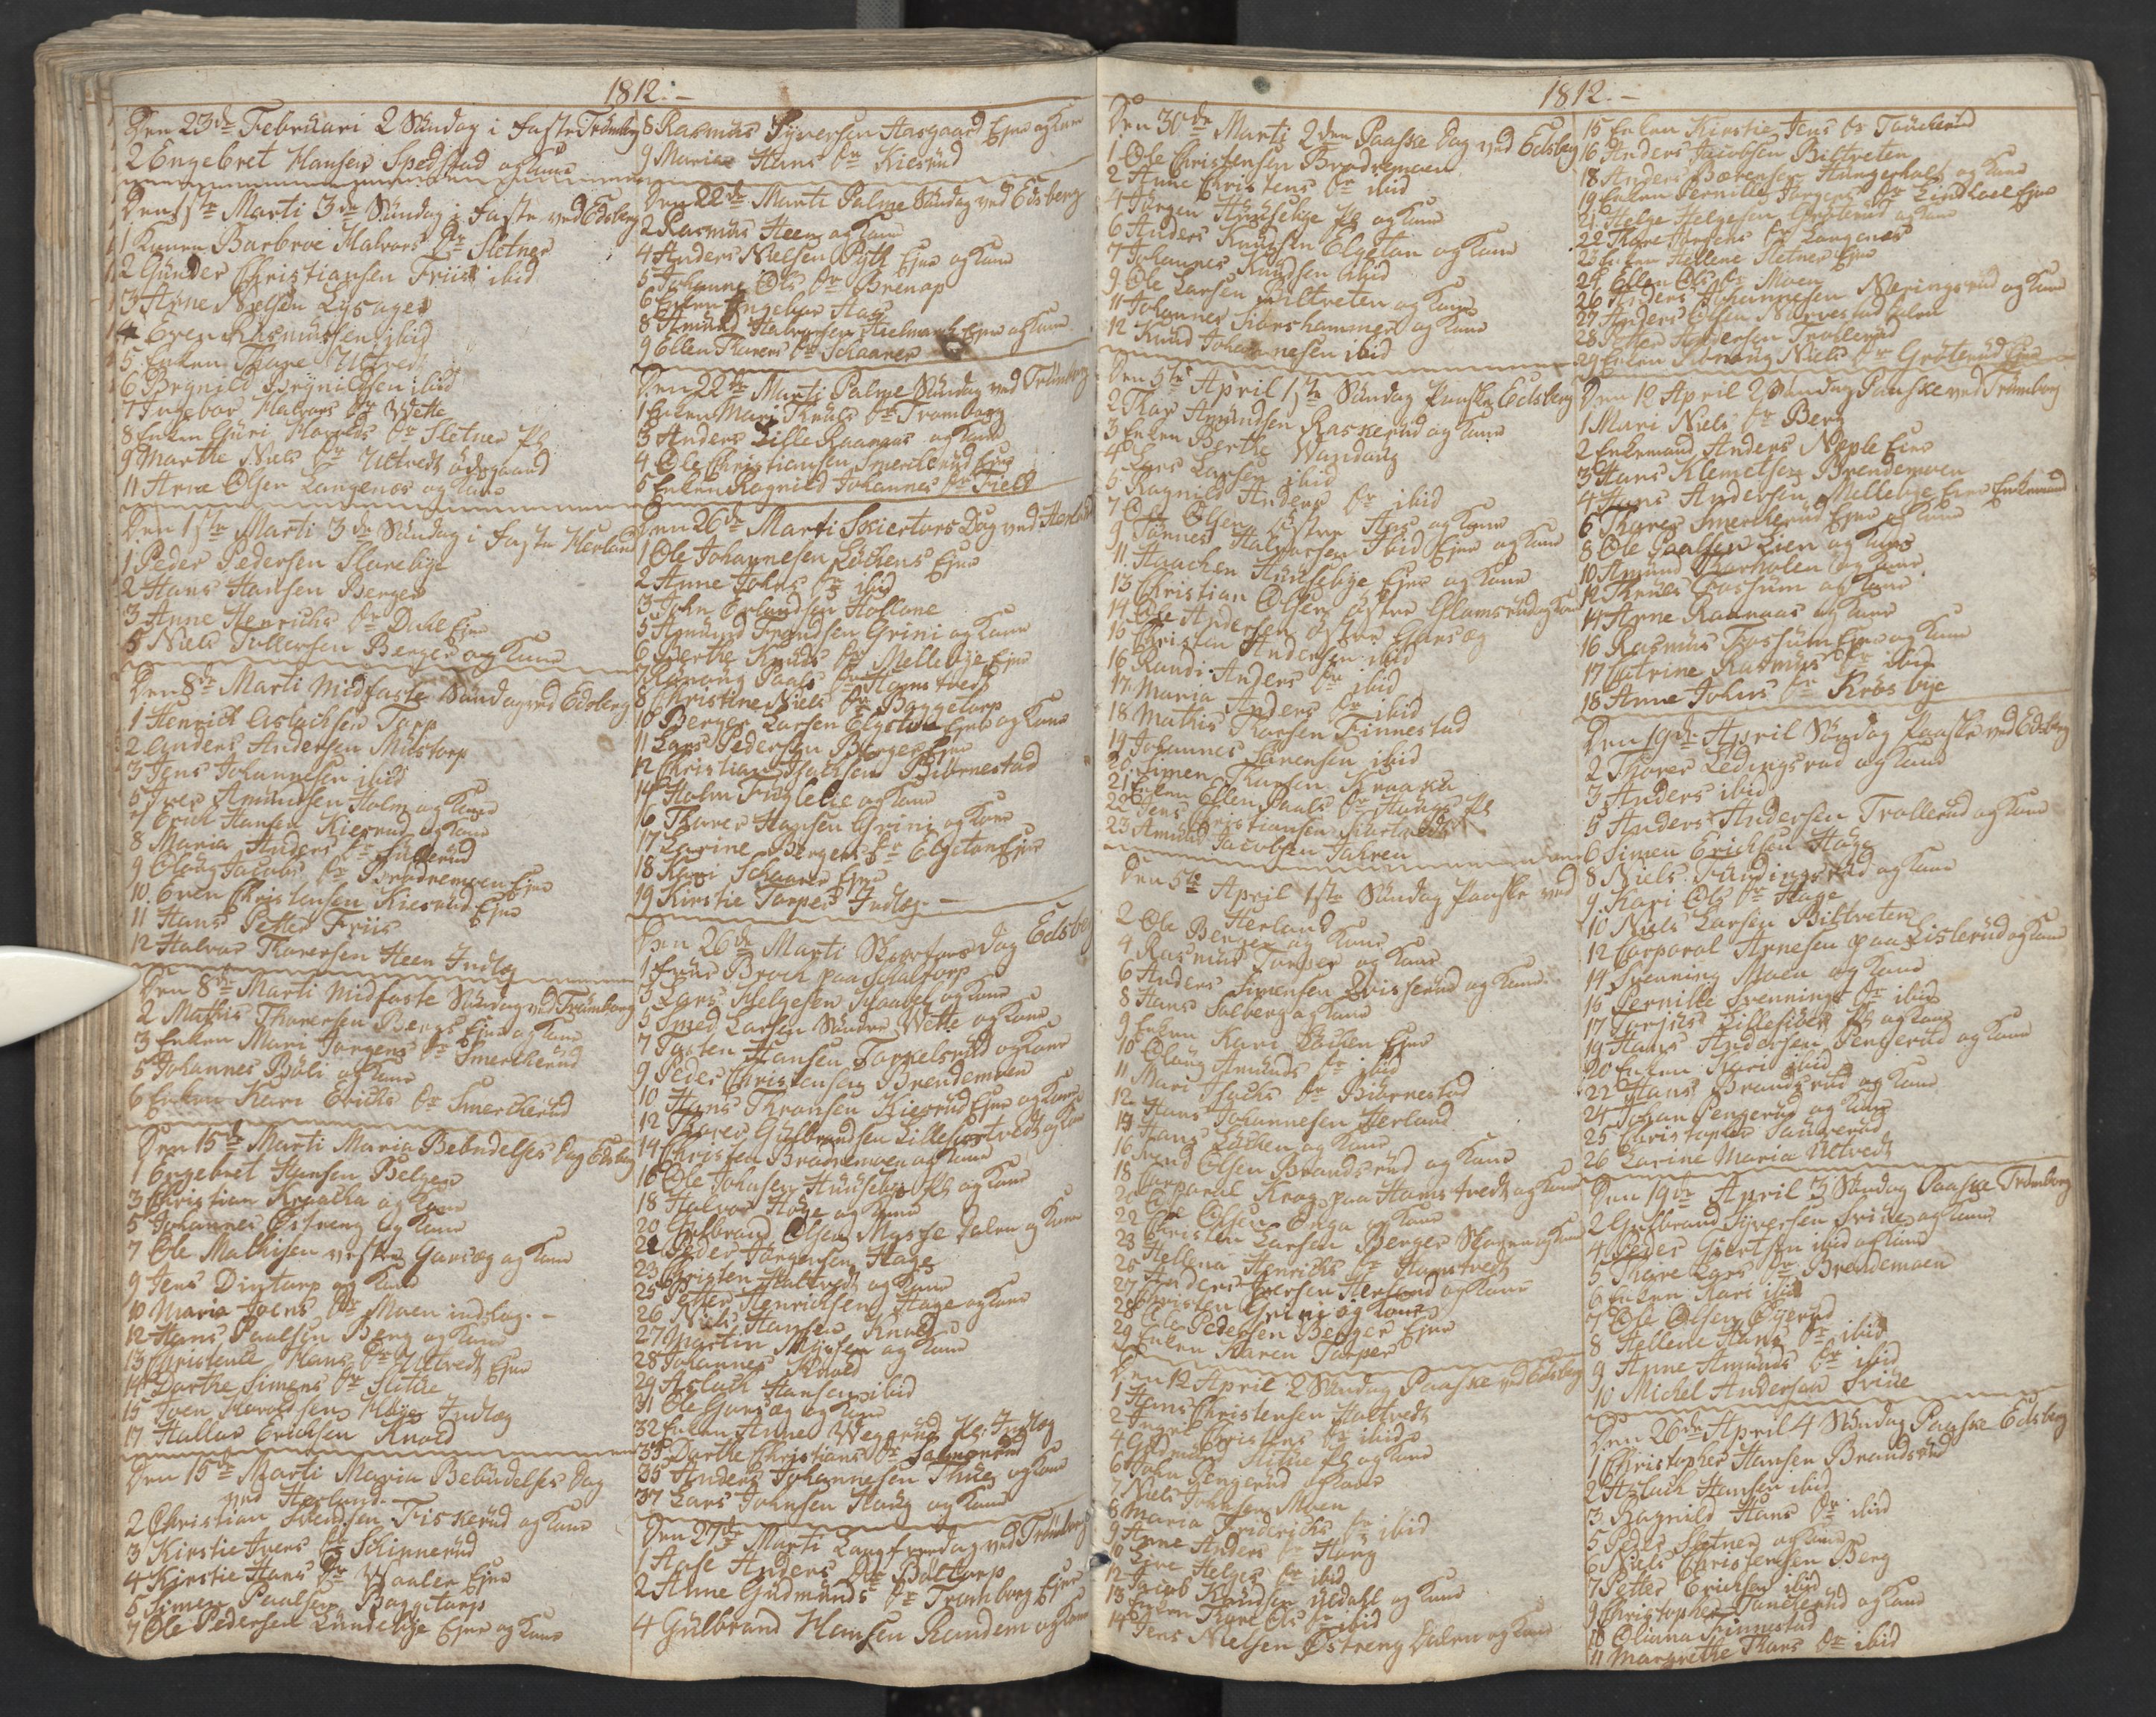 1812.-
Den 23de Februari 2 Søndag i Faste Trömborg
2 Engebret Hansen Spedstad og Kone
Den 1ste Marti 3de Søndag i Faste ved Edsberg
1 Konen Barbroe Halvors Dr Sletner
2 Gunder Christiansen Friis ibid
3 Arne Nielsen Lysager
4 Even Rasmussen ibid
5 Enken Thore Ultvedt
6 Brynild Brynildsen ibid
7 Ingebor Halvors Dr Wette
8 Enken Guri Haralds Dr Sletner Pl
9 Marthe Niels Dr Ultvedt ödegaard
11 Arne Olsen Langenes og Kone
Den 1ste Marti 3de Søndag i Faste Herland
1 Peder Pedersen Slorebye
2 Hans Hansen Berger
3 Anne Henrichs Dr Dahl Ejer
5 Niels Tollersen Berger og Kone
Den 8de Marti Midfaste Søndag ved Edsberg
1 Henrich Aslachsen Torp
2 Anders Andersen Mustorp
3 Jens Johannesen ibid
5 Iver Amundsen Holm og Kone
7 Erich Hansen Kiserud og Kone
8 Maria Anders Dr
9 Oloug Jacobs Dr Brödremoen Ejer
10 Even Christensen Kiserud Ejer
11 Hans Petter Friis
12 Halvor Thoresen Heen Indlæg
Den 8de Marti Midfaste Søndag ved Trömborg
2 Mathis Thoresen Berg Ejer og Kone
3 Enken Mari Jörgens Dr Smerkerud
5 Johannes Böli og Kone
6 Enken Kari Erichs Dr Smerkerud
Den 15de Marti Maria Bebudelses Dag Edsberg
1 Engebret Hansen Belger
3 Christian Kraaka og Kone
5 Johannes Östreng og Kone
7 Ole Mathisen vestre Garsæg og Kone
9 Jens Dintorp og Kone
10 Maria Joens Dr Moen indlæg.-
12 Hans Paalsen Berg og Kone
13 Christense Hans Dr Ultvedt Ejer
14 Dorthe Simens Dr Slitue
15 Joen Haraldsen Höje Indlæg
17 Hallor Erichsen Knold
Den 15de Marti Maria Bebudelses Dag
ved Herland.-
2 Christian Svendsen Fiskerud og Kone
3 Kirstie Ivers Dr Schinnerud
4 Kirstie Hans Dr Waaler Ejer
5 Simen Paalsen Baggetorp
7 Ole Pedersen Lundebye Ejer og Kone
8 Rasmus Syversen Aasgaard Ejer og Kone
9 Maria Hans Dr Kiserud
Den 22de Marti Palme Søndag ved Edsberg
2 Rasmus Heen og Kone
4 Anders Nielsen Ejer og Kone
5 Johanne Ols Dr Grenap
6 Enken Ingebor Aas
8 Amund Halvorsen Hielmark Ejer og Kone
9 Ellen Thorers Dr Schaarer
Den 22de Marti Palme Søndag ved Trömborg
1 Enken Mari Knuds Dr Tromborg
3 Anders Lille Raanaas og Kone
4 Ole Christiansen Smerkerud Ejer
5 Enken Ragnild Johannes Dr Field
Den 26de Marti Skiertors Dag ved Herland
1 Ole Johannesen Löchens Ejer
2 Anne Johns Dr ibid
3 John Erlandsen Hollone
5 Amund Frandsen Grini og Kone
6 Berthe Knuds Dr Mellebye Ejer
7 Ronoug Paals Dr Hamstvedt
8 Christine Niels Dr Baggetorp
10 Berger Larsen Elgetun Ejer og Kone
11 Lars Pedersen Berger Ejer
12 Christian Isachsen Biörnestad
14 Holm Fuglelie og Kone
16 Thorer Hansen Grini og Kone
17 Larine Bergers Dr Elgetun Ejer
18 Kari Schaarer Ejer
19 Kirstie Torper Indlæg.-
Den 26de Marti Skiertors Dag Edsberg
1 Frue Broch paa Schaltorp
3 Lars Helgesen Skaabel og Kone
5 Smed Larsen Söndre Wette og Kone
7 Torsten Hansen Toppelsrud og Kone
9 Peder Christensen Brendemoen
10 Hans Thronsen Kiserud Ejer og Kone
12 Thorer Gulbrandsen Lillesostvedt og Kone
14 Christen Brödremoen og Kone
16 Ole Johnsen Huusebye Pl og Kone
18 Halvor Höje og Kone
20 Gulbrand Olsen Mysse Dalen og Kone
22 Peder Jörgensen Hage
23 Christen Haltvedt og Kone
25 Petter Henrichsen Hage og Kone
26 Niels Hansen Knold
27 Martin Mysen og Kone
28 Johannes Knold
29 Aslach Hansen ibid
31 Ole Garsæg og Kone
32 Enken Anne Wegerud Pl. Indlæg
33 Dorthe Christians Dr Salmonrud
35 Anders Johannesen Thue og Kone
37 Lars Johnsen Houg og Kone
Den 27de Marti Langfredag ved Trömborg
1 Aase Anders Dr Böltorp
2 Anne Gudmunds Dr Tromborg Ejer
4 Gulbrand Hansen Randem og Kone
1812.-
Den 30de Marti 2den Paaske Dag ved Edsberg
1 Ole Christensen Brödremoen
2 Anne Christens Dr ibid
4 Jörgen Huusebye Pl og Kone
6 Anders Knudsen Elgetun og Kone
7 Johannes Knudsen ibid
9 Ole Larsen Biltveten og Kone
11 Johannes Siörshammer og Kone
12 Knud Johannesen ibid
Den 5te April 1ste Søndag Paaske Edsberg
2 Thor Amundsen Raskerud og Kone
3 Enken Berthe Wandang
4 Lars Larsen ibid
5 Ragnild Anders Dr ibid
7 Ole Olsen östre Aas og Kone
9 Tönnes Halvorsen ibid Ejer og Kone
11 Haachen Huusebye Ejer og Kone
13 Christian Olsen östre Glamsrud og Kone
14 Ole Andersen östre Garsæg
15 Christen Andersen ibid
16 Randi Anders Dr ibid
17 Maria Anders Dr ibid
18 Mathis Thorsen Finnestad
19 Johannes Sörensen ibid
20 Simen Thorsen Kraaka
21 Enken Ellen Paals Dr Hougs Pl
22 Jens Christiansen
23 Amund Jacobsen Jahren
Den 5te April 1ste Søndag Paaske ved
Herland
2 Ole Berger og Kone
4 Rasmus Torper og Kone
6 Anders Simensen Qvisserud og Kone
8 Hans Solberg og Kone
9 Enken Kari Löchen Ejer
10 Oloug Amunds Dr ibid
11 Mari Isachs Dr Biörnestad
12 Hans Johannesen Herland
14 Hans Löchen og Kone
16 Svend Olsen Brandsrud og Kone
18 Corporal Krog paa Hamstvedt og Kone
20 Ole Olsen Enga og Kone
22 Christen Larsen Berger Skoven og Kone
23 Hellena Henrichs Dr Hamstvedt
25 Anders Iversen Herland og Kone
27 Christen Grini og Kone
28 Ole Pedersen Berger Ejer
29 Enken Karen Torper
Den 12 April 2 Søndag Paaske ved Edsberg
1 Hans Christensen Haltvedt
2 Inger Christens Dr ibid
4 Gudmund Slitue Pl og Kone
6 John Gengerud og Kone
7 Niels Johnsen Moen
8 Maria Friderichs Dr ibid
9 Anne Anders Dr Houg
10 Live Helges Dr ibid
12 Jacob Knudsen Uldahl og Kone
13 Enken Thore Ols Dr ibid
14 Jens Nielsen Östreng Dalen og Kone
15 Enken Kirstie Jens Dr Touckerud
16 Anders Jacobsen Biltveten
18 Anders Börensen Hungerholt og Kone
19 Enken Pernille Jörgens Dr Lindhoel Ejer
21 Helge Helgesen Gröterud og Kone
22 Thore Torsens Dr Langenes
23 Enken Hellene Sletner Ejer
24 Ellen Ols Dr Moen
26 Anders Johannesen Næringsrud og Kone
27 Anders Olsen Narvestad Dalen
28 Petter Andersen Trollerud
29 Enken Ronoug Niels Dr Gröterud Ejer
Den 12 April 2 Søndag Paaske ved Trömborg
1 Mari Niels Dr Berg
2 Enkemand Anders Neple Ejer
3 Hans Klemetsen Brendemoen
4 Hans Andersen Mellebye Ejer Enkemand
6 Thorer Smerkerud Ejer og Kone
8 Ole Paalsen Lien og Kone
10 Amund Thorholen og Kone
12 Knud Fossum og Kone
14 Arne Raanaas og Kone
16 Rasmus Fossum Ejer og Kone
17 Catrine Rasmus Dr ibid
18 Anne Johns Dr Krösbye
Den 19de April Søndag Paaske ved Edsberg
2 Thorer Ledingsrud og Kone
3 Anders ibid
5 Anders Andersen Trollerud og Kone
6 Simen Erichsen Hage
8 Niels Fundingsrud og Kone
9 Kari Ols Dr Hage
10 Niels Larsen Biltveten
12 Corporal Arnesen paa Listerud og Kone
14 Svenning Moen og Kone
15 Pernille Svennings Dr ibid
17 Torjus Lillesiöen Pl og Kone
19 Hans Andersen Pengerud og Kone
20 Enken Kari ibid
22 Hans Brandsrud og Kone
24 Johan Pengerud og Kone
25 Christopher Touckerud
26 Larine Maria Ultvedt
Den 19de April 3 Søndag Paaske Trömborg
2 Gulbrand Syversen Sviue og Kone
4 Peder Giertsen ibid og Kone
5 Thore Lars Dr Brendemoen
6 Enken Kari ibid
7 Ole Olsen Öyerud
8 Hellene Hans Dr ibid
9 Anne Amunds Dr ibid
10 Michel Andersen Sviue
Den 26de April 4 Søndag Paaske Edsberg
1 Christopher Hansen Brandsrud
2 Aslach Hansen ibid
3 Ragnild Hans Dr ibid
5 Peder Sletner og Kone
6 Niels Christensen Berg
7 Petter Erichsen ibid
9 Christopher Touckerud og Kone
10 Oliana Finnestad
11 Margrethe Thors Dr ibid